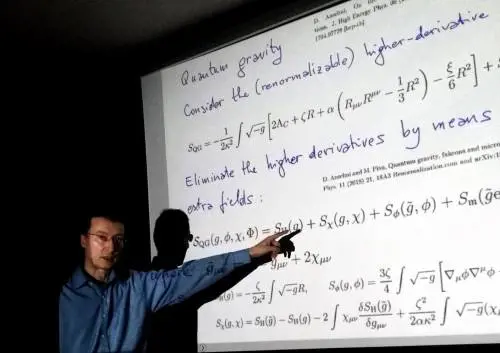 D. Anselmi, On
tions, J. High Energy Phys. 06 (
1704.07728 [hep-th]
Quantum gravity
Consider the (renormalizable) higher-derivative
S_QG = -\frac{1}{2κ^2} ∫ \sqrt{-g} [ 2Λ_C + ζR + α ( R_{μν}R^{μν} - \frac{1}{3}R^2 ) - \frac{ξ}{6}R^2 ] +
Eliminate the higher derivatives by means
D. Anselmi and M. Piva, Quantum gravity, fakeons and micro
Phys. 11 (2018) 21, 18A3 Renormalization.com and arXiv:
extra fields :
S_QG(g, φ, χ, Φ) = S_H(g) + S_χ(g, χ) + S_φ(g̃, φ) + S_m(g̃e
g_{μν} + 2χ_{μν}
_H(g) = -\frac{ζ}{2κ^2} ∫ \sqrt{-g}R, S_φ(g, φ) = \frac{3ζ}{4} ∫ \sqrt{-g} [ ∇_μφ∇^μφ -
S_χ(g, χ) = S_H(g̃) - S_H(g) - 2 ∫ χ_{μν} \frac{δS_H(g̃)}{δg_{μν}} + \frac{ζ^2}{2ακ^2} ∫ \sqrt{-g}(χ